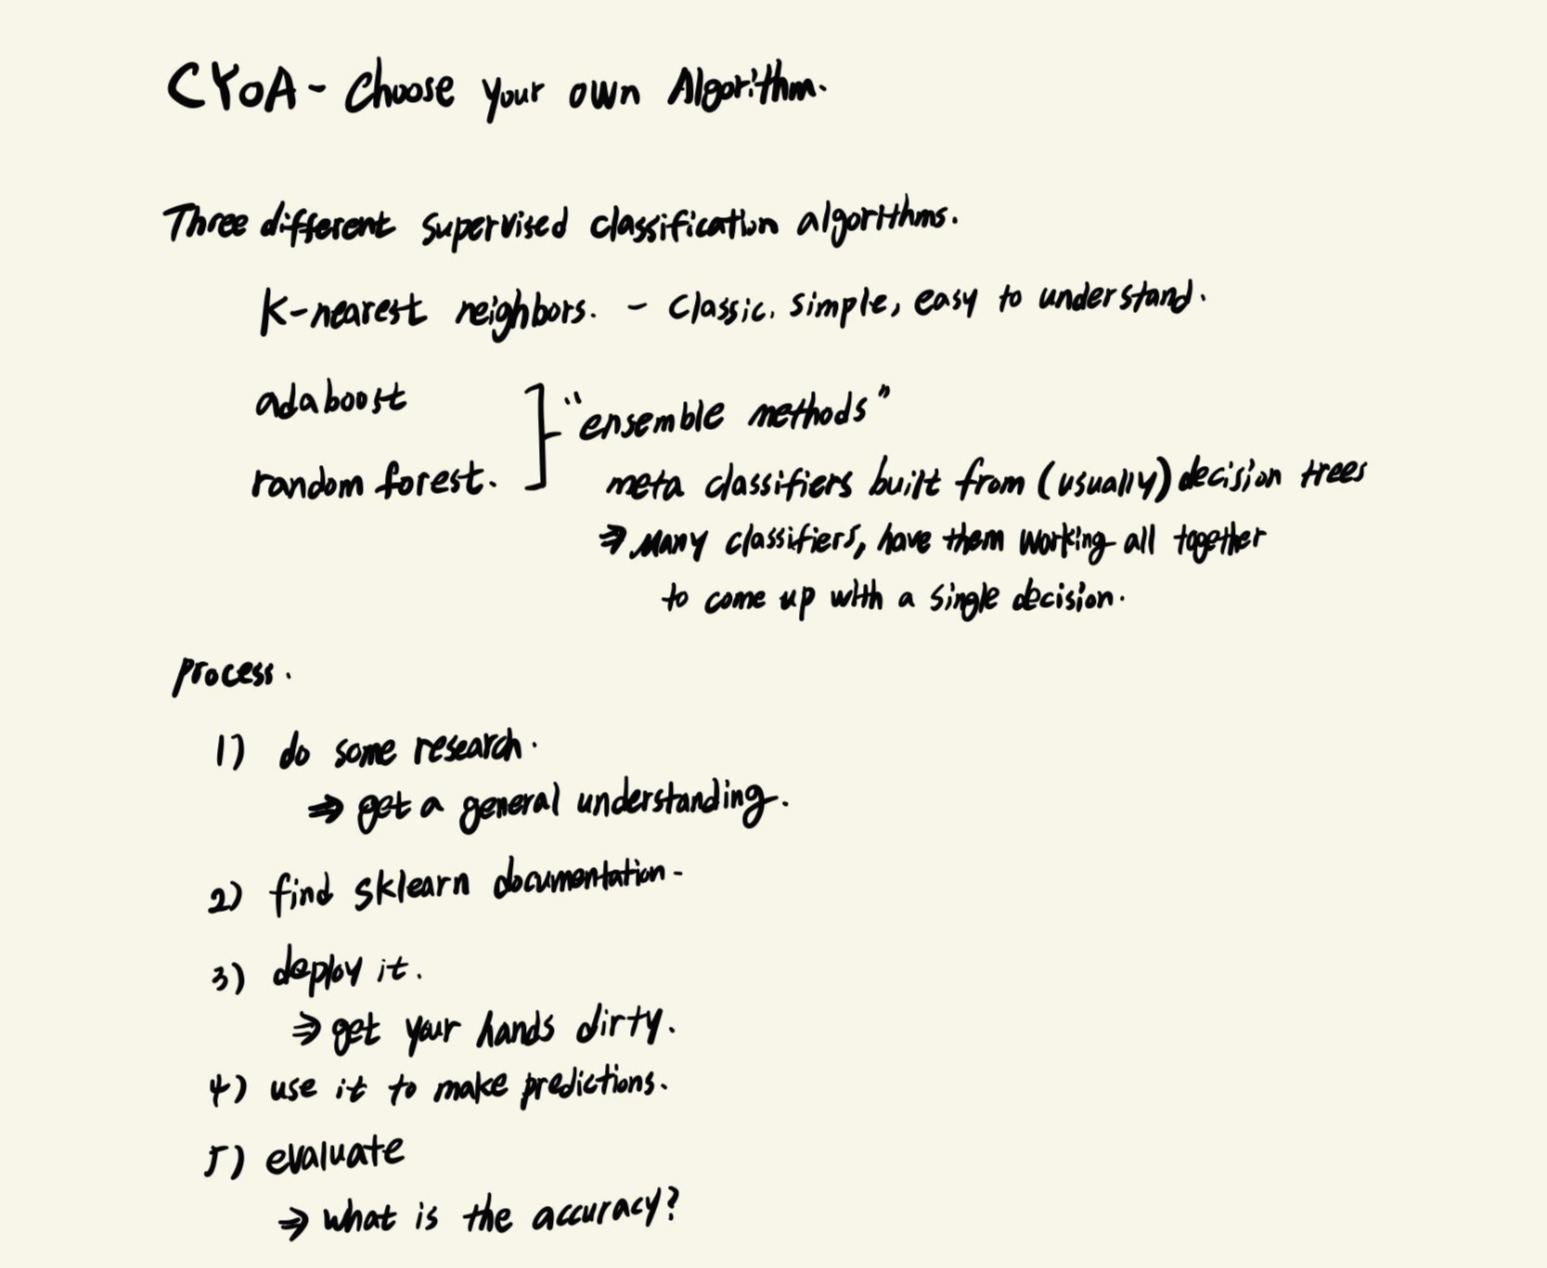 CYOA - Choose your own Algorithm.
Three different supervised classification algorithms.
K-nearest neighbors. - classic, simple, easy to understand.
adaboost
"ensemble methods"
random forest.
meta classifiers built from (usually) decision trees
⇒ Many classifiers, have them working all together
to come up with a single decision.
process.
1) do some research.
⇒ get a general understanding.
2) find sklearn documentation.
3) deploy it.
⇒ get your hands dirty.
4) use it to make predictions.
5) evaluate
⇒ what is the accuracy?